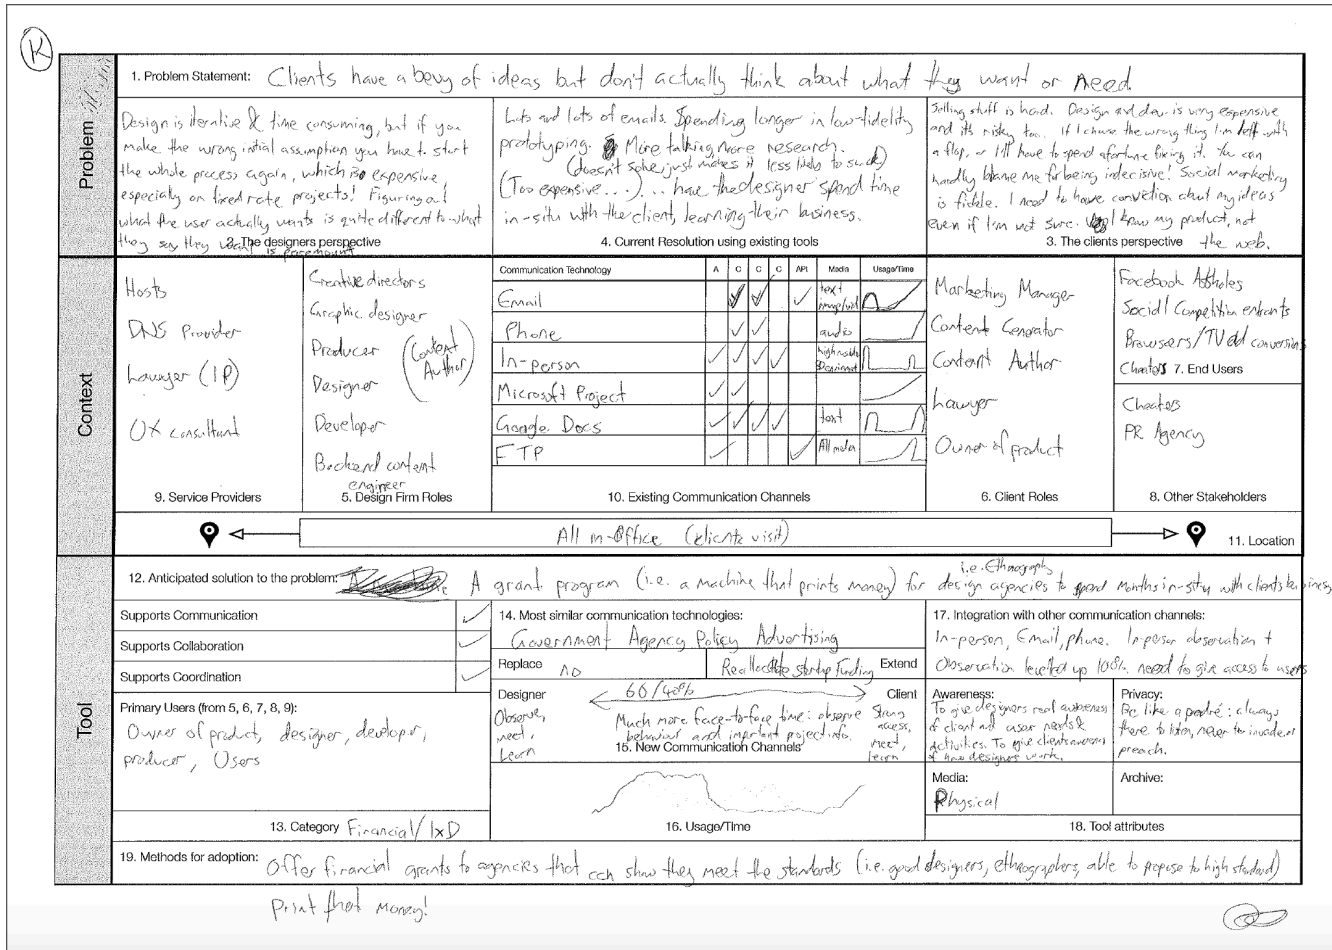 K
Problem
1. Problem Statement: Clients have a bevy of ideas but don't actually think about what they want or need
Design is iterative & time consuming, but if you
make the wrong initial assumption you have to start
the whole process again, which is expensive,
especially on fixed rate projects! Figuring out
what the user actually wants is quite different to what
they say they want is paramount
2. The designers perspective
Lots and lots of emails. Spending longer in low-fidelity
prototyping. More talking more research.
(doesn't solve, just makes it less likely to suck)
(Too expensive....).. have the designer spend time
in-situ with the client, learning their business.
4. Current Resolution using existing tools
Selling stuff is hard. Design and dev. is very expensive
and its risky too. If I chose the wrong thing I'm left with
a flop, or I'll have to spend a fortune fixing it. You can
hardly blame me for being indecisive! Social marketing
is fickle. I need to have conviction about my ideas
even if I'm not sure. I know my product, not
the web.
3. The clients perspective
Context
Hosts
DNS Provider
Lawyer (IP)
UX consultant
9. Service Providers
Creative directors
Graphic designer
Producer
Designer
(Content
Author)
Developer
Backend content
engineer
5. Design Firm Roles
Communication Technology A C C C API Media Usage/Time
Email text
image/vid
Phone audio
In-person
Microsoft Project
Google Docs text
FTP All media
10. Existing Communication Channels
Marketing Manager
Content Generator
Content Author
Lawyer
Owner of product
6. Client Roles
Facebook Assholes
Social/Competition entrants
Browsers/TV ad conversions
Cheaters 7. End Users
Cheaters
PR Agency
8. Other Stakeholders
All in-office (clients visit)
11. Location
Tool
i.e. Ethnography
12. Anticipated solution to the problem: A grant program (i.e. a machine that prints money) for design agencies to spend months in-situ with clients business
Supports Communication
Supports Collaboration
Supports Coordination
Primary Users (from 5, 6, 7, 8, 9):
Owner of product, designer, developer,
producer, Users
13. Category Financial/IxD
14. Most similar communication technologies:
Government Agency Policy Advertising
Replace no Reallocate startup funding Extend
Designer 60/40% Client
Observe,
meet,
learn
Much more face-to-face time: observe
behaviour and important project info.
Strong
access,
meet,
learn
15. New Communication Channels
16. Usage/Time
17. Integration with other communication channels:
In-person, Email, phone. In-person observation +
Observation levelled up 100%. need to give access to users
Awareness:
To give designers real awareness
of client and user needs &
activities. To give clients awareness
of how designers work.
Privacy:
Be like a padré: always
there to listen, never to invade or
preach.
Media:
Physical
Archive:
18. Tool attributes
19. Methods for adoption: Offer financial grants to agencies that can show they meet the standards (i.e. good designers, ethnographers, able to propose to high standard)
Print that money!